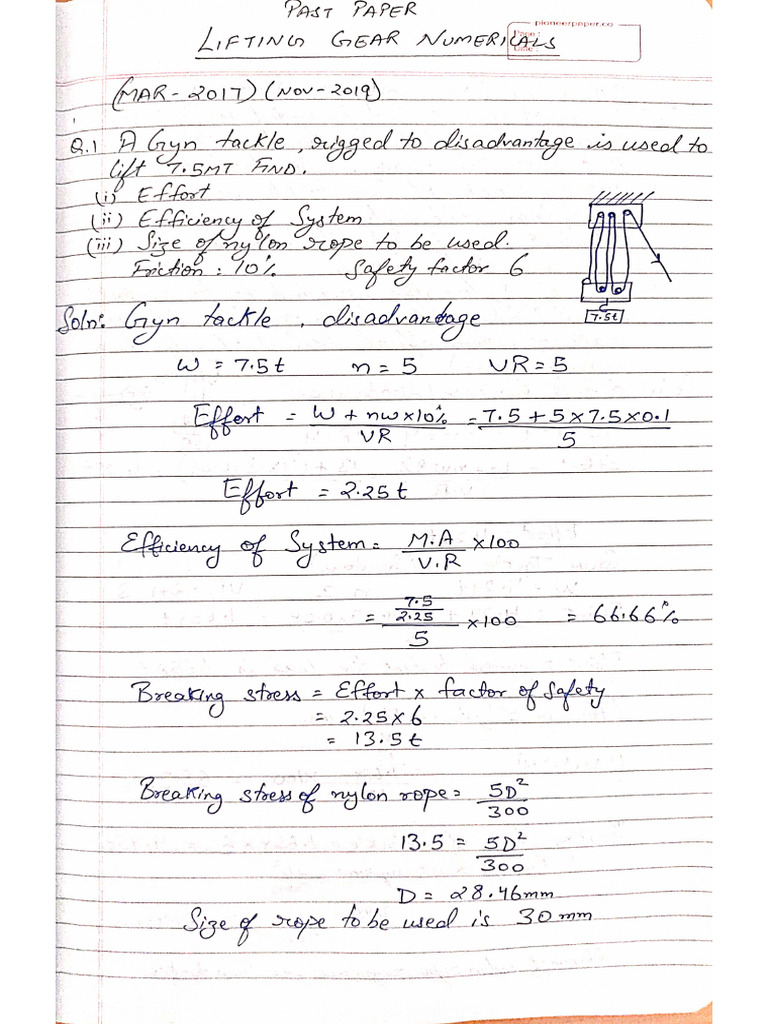 PAST PAPER
pioneerpaper.co
LIFTING GEAR NUMERICALS
Page:
Date:
(MAR-2017) (NOV-2019)
Q.1 A Gyn tackle, rigged to disadvantage is used to
lift 7.5MT FIND.
(i) Effort
(ii) Efficiency of System
(iii) Size of nylon rope to be used.
Friction: 10% Safety factor 6
7.5t
Soln: Gyn tackle, disadvantage
W = 7.5t n = 5 VR = 5
Effort = W + nw x 10% / VR = 7.5 + 5 x 7.5 x 0.1 / 5
Effort = 2.25t
Efficiency of System = M.A / V.R x 100
= 7.5 / 2.25 / 5 x 100 = 66.66%
Breaking stress = Effort x factor of safety
= 2.25 x 6
= 13.5t
Breaking stress of nylon rope = 5D² / 300
13.5 = 5D² / 300
D = 28.46mm
Size of rope to be used is 30mm